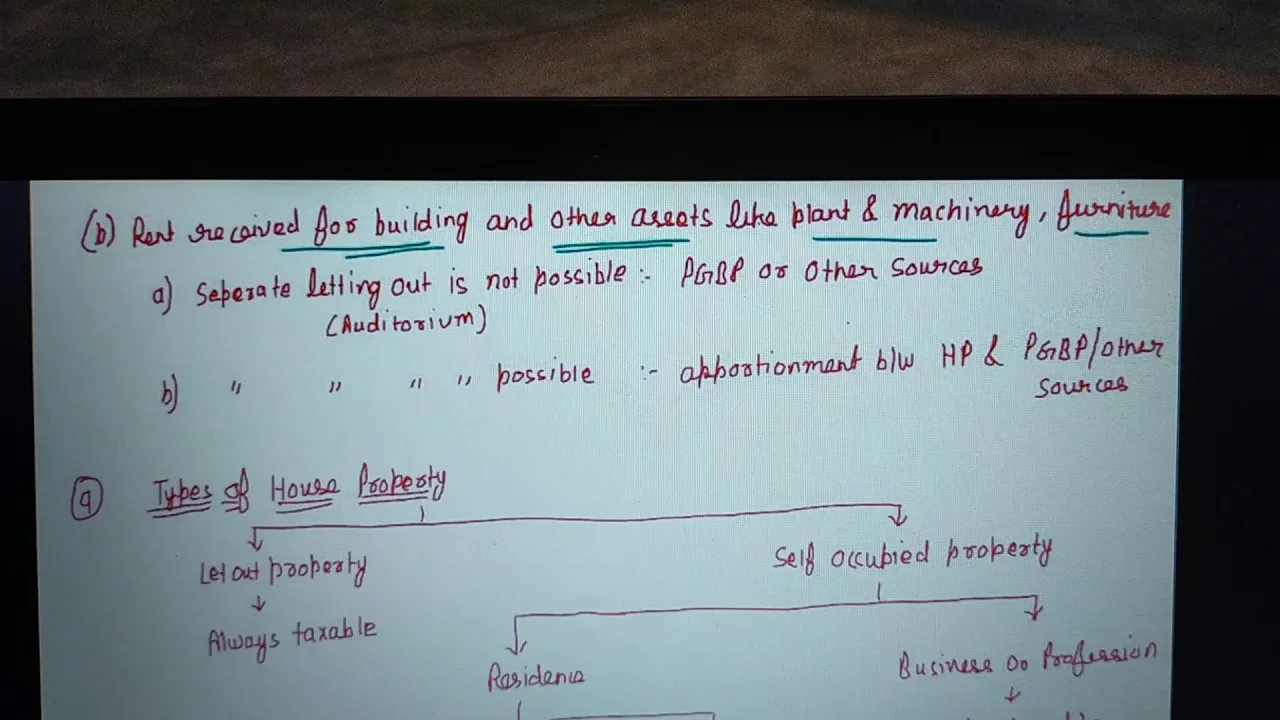 (b) Rent received for building and other assets like plant & machinery, furniture
a) Seperate letting out is not possible :- PGBP or Other Sources
(Auditorium)
b) " " " " possible :- apportionment b/w HP & PGBP/other
Sources
9 Types of House Property
Let out property
Self occupied property
Always taxable
Residence
Business or Profession